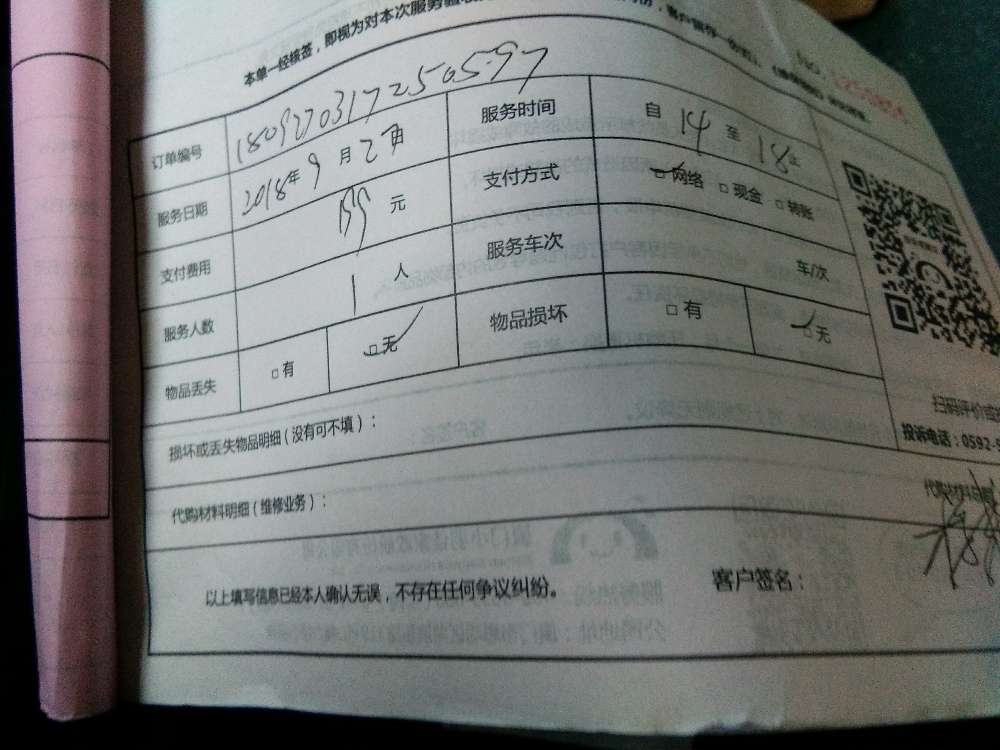 本单一经核签，即视为对本次服务
订单编号 18092703172505597
服务时间 自 14 至 18止
服务日期 2018年9月
支付方式 网络 □ 现金 □ 转账
支付费用 元
服务车次 车/次
服务人数 1 人
物品丢失 □ 有 □ 无
物品损坏 □ 有 □ 无
损坏或丢失物品明细（没有可不填）：
扫码评价或
投诉电话：0592-5
代购材料明细（维修业务）：
代购材料
以上填写信息已经本人确认无误，不存在任何争议纠纷。
客户签名：